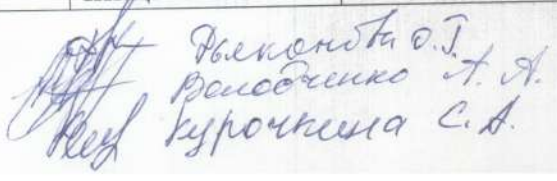 Дьяконова О.Г.
Володченко А. А.
Курочкина С. А.